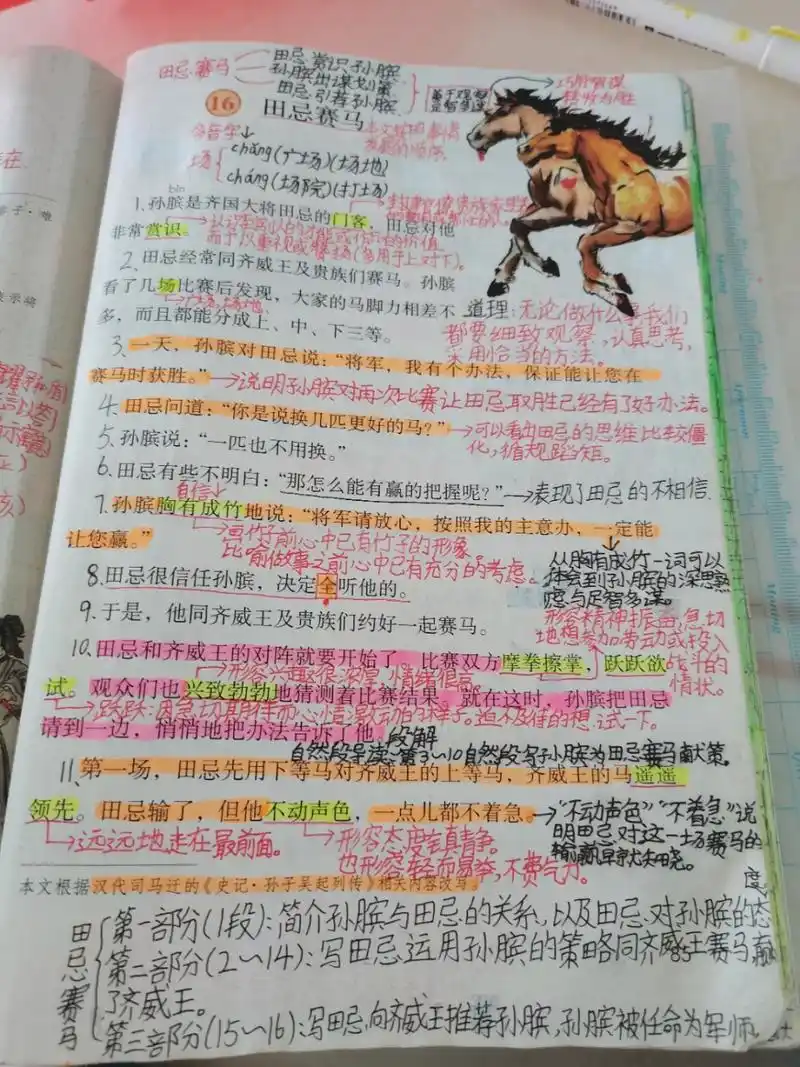 田忌赛马
田忌赏识孙膑
孙膑出谋划策
田忌引荐孙膑
16 田忌赛马
多音字
场
cháng(广场)(场地)
cháng(场院)(打场)
bìn
1.孙膑是齐国大将田忌的门客，田忌对他
非常赏识。
2.田忌经常同齐威王及贵族们赛马。孙膑
看了几场比赛后发现，大家的马脚力相差不
广场 场地
多，而且都能分成上、中、下三等。
道理：无论做什么事我们
都要细致观察，认真思考，
采用恰当的方法。
3.一天，孙膑对田忌说：“将军，我有个办法，保证能让您在
赛马时获胜。”
说明孙膑对再次比赛让田忌取胜已经有了好办法。
4.田忌问道：“你是说换几匹更好的马？”
可以看出田忌的思维比较僵
化，循规蹈矩。
5.孙膑说：“一匹也不用换。”
6.田忌有些不明白：“那怎么能有赢的把握呢？”
表现了田忌的不相信.
自信
7.孙膑胸有成竹地说：“将军请放心，按照我的主意办，一定能
让您赢。”
画竹子前心中已有竹子的形象。
比喻做事之前心中已有充分的考虑。
从胸有成竹一词可以
体会到孙膑的深思熟
虑与足智多谋。
8.田忌很信任孙膑，决定全听他的。
9.于是，他同齐威王及贵族们约好一起赛马。
形容精神振奋,急切
地想参加劳动或投入
战斗的
情状。
10.田忌和齐威王的对阵就要开始了，比赛双方摩拳擦掌、跃跃欲
形容兴趣很浓厚,情绪很高
试。观众们也兴致勃勃地猜测着比赛结果。就在这时，孙膑把田忌
跃跃:因急切期待而心情激动的样子。迫不及待的想试一下。
请到一边，悄悄地把办法告诉了他。
段解
自然段导读:第3~10自然段写孙膑为田忌赛马献策。
11.第一场，田忌先用下等马对齐威王的上等马，齐威王的马遥遥
领先。田忌输了，但他不动声色，一点儿都不着急。
“不动声色”“不着急”说
明田忌对这一场赛马的
输赢早就知晓。
远远地走在最前面。
形容态度
也形容轻而易举,不费气力。
本文根据汉代司马迁的《史记·孙子吴起列传》相关内容改写。
田忌赛马
第一部分(1段):简介孙膑与田忌的关系,以及田忌对孙膑的态
度
第二部分(2~14):写田忌运用孙膑的策略同齐威王赛马赢
了齐威王。
85
第三部分(15~16):写田忌向齐威王推荐孙膑,孙膑被任命为军师。